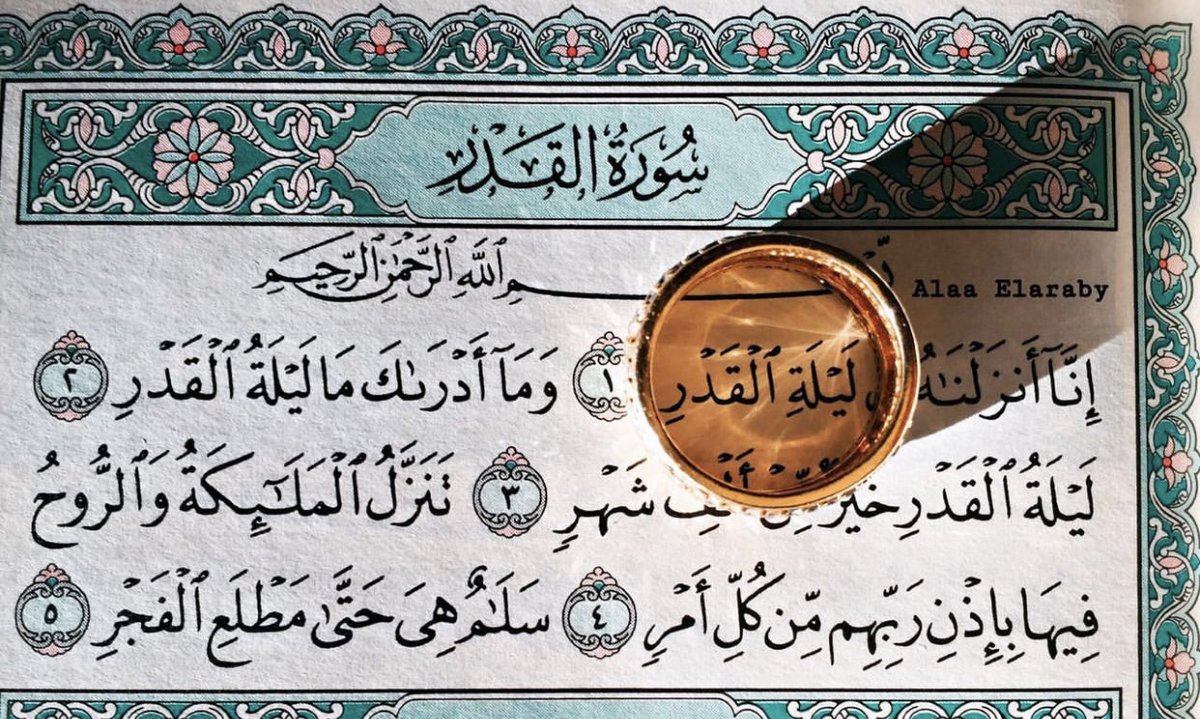 سُورَةُ القَدۡرِ
ٱللَّهِ ٱلرَّحۡمَٰنِ ٱلرَّحِيمِ
Alaa Elaraby
إِنَّآ أَنزَلۡنَٰهُ لَيۡلَةِ ٱلۡقَدۡرِ ١ وَمَآ أَدۡرَىٰكَ مَا لَيۡلَةُ ٱلۡقَدۡرِ ٢
لَيۡلَةُ ٱلۡقَدۡرِ خَيۡرٞ شَهۡرٖ ٣ تَنَزَّلُ ٱلۡمَلَٰٓئِكَةُ وَٱلرُّوحُ
فِيهَا بِإِذۡنِ رَبِّهِم مِّن كُلِّ أَمۡرٖ ٤ سَلَٰمٌ هِيَ حَتَّىٰ مَطۡلَعِ ٱلۡفَجۡرِ ٥